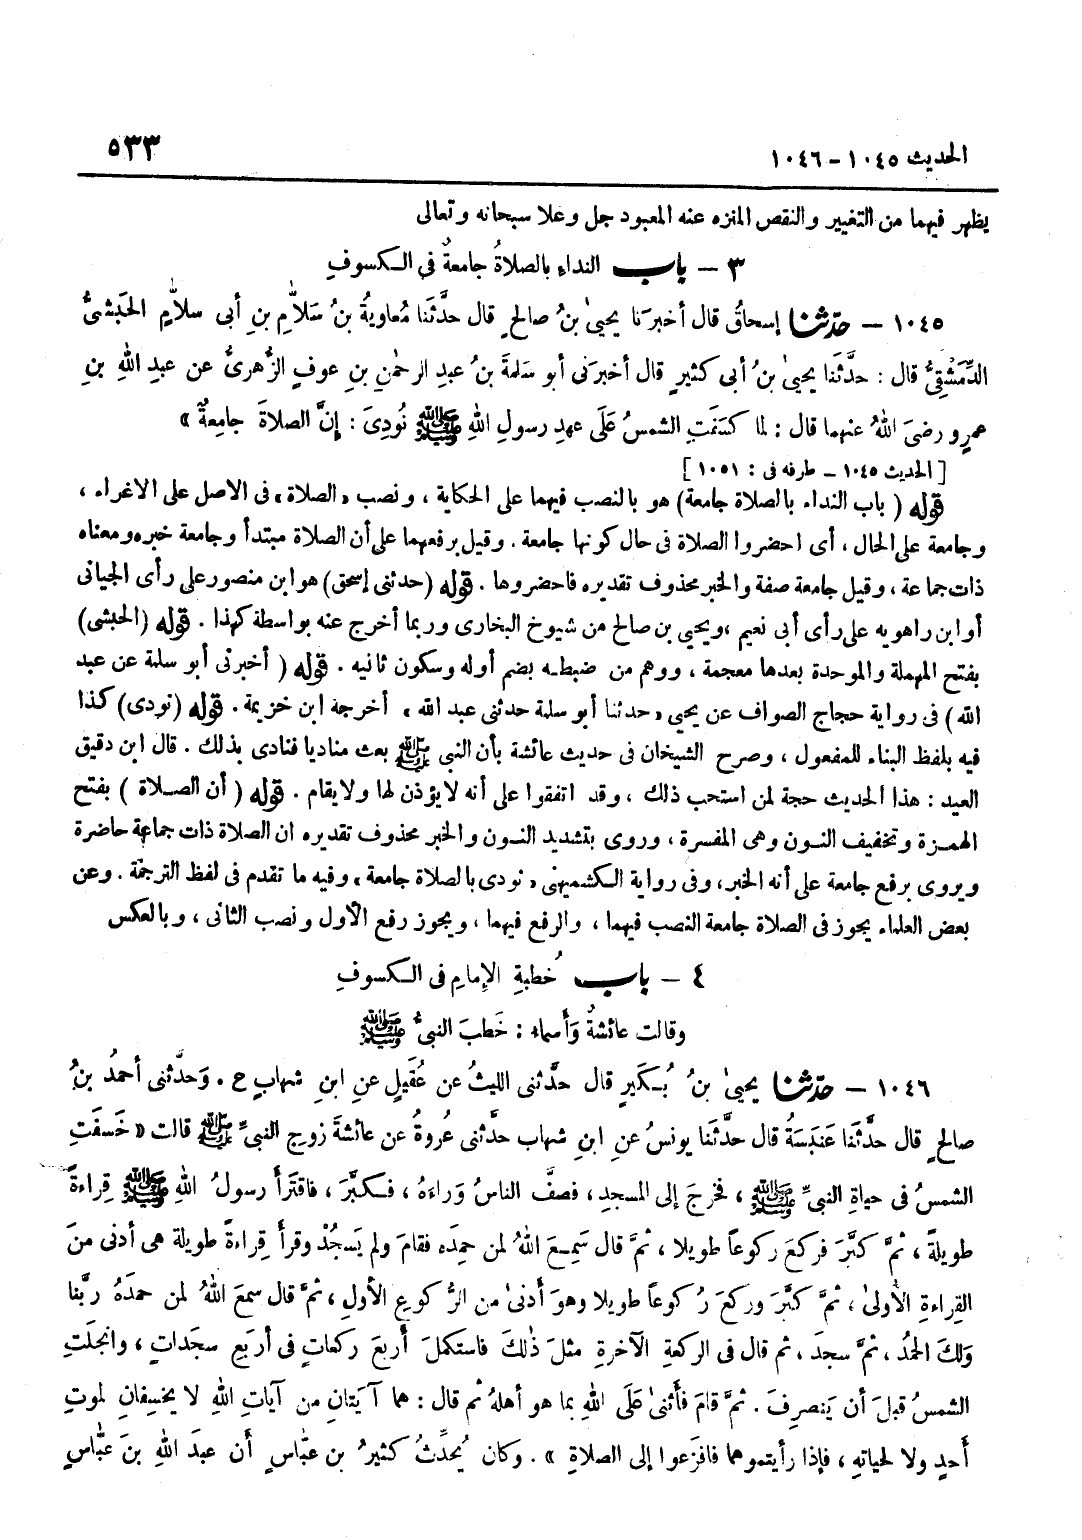 الحديث ١٠٤٥ - ١٠٤٦
٥٣٣
يظهر فيهما من التغيير والنقص المنزه عنه المعبود جل وعلا سبحانه وتعالى
٣ - باب النداءِ بالصلاةُ جامعةٌ في الكسوفِ
١٠٤٥ - حدّثنا إسحاقُ قال أخبرَنا يحيىٰ بنُ صالحٍ قال حدَّثَنا مُعاويةُ بنُ سَلاَّمِ بنِ أبى سلاَّمٍ الحَبَشىُّ
الدِّمَشْقِىُّ قال : حدَّثَنا يحيىٰ بنُ أبى كثيرٍ قال أخبرَنى أبو سَلمةَ بنُ عبدِ الرحمٰنِ بنِ عوفٍ الزُّهرىُّ عن عبدِ اللهِ بنِ
عمرٍو رضىَ اللهُ عنهما قال : لما كسَفَتِ الشمسُ عَلَى عهدِ رسولِ اللهِ ﷺ نُودِىَ : إنَّ الصلاةَ جامعةٌ »
[ الحديث ١٠٤٥ - طرفه فى : ١٠٥١ ]
قوله ( باب النداء بالصلاة جامعة ) هو بالنصب فيهما على الحكاية ، ونصب « الصلاة » فى الاصل على الاغراء ،
وجامعة على الحال ، أى احضروا الصلاة فى حال كونها جامعة . وقيل برفعهما على أن الصلاة مبتدأ وجامعة خبره ومعناه
ذات جماعة ، وقيل جامعة صفة والخبر محذوف تقديره فاحضروها . قوله ( حدثنى إسحق ) هو ابن منصور على رأى الجيانى
أو ابن راهويه على رأى أبى نعيم ، ويحيى بن صالح من شيوخ البخارى وربما أخرج عنه بواسطة كهذا . قوله ( الحبشى )
بفتح المهملة والموحدة بعدها معجمة ، ووهم من ضبطه بضم أوله وسكون ثانيه . قوله ( أخبرنى أبو سلمة عن عبد
الله ) فى رواية حجاج الصواف عن يحيى « حدثنا أبو سلمة حدثنى عبد الله » أخرجه ابن خزيمة . قوله ( نودى ) كذا
فيه بلفظ البناء للمفعول ، وصرح الشيخان فى حديث عائشة بأن النبى ﷺ بعث مناديا فنادى بذلك . قال ابن دقيق
العيد : هذا الحديث حجة لمن استحب ذلك ، وقد اتفقوا على أنه لا يؤذن لها ولا يقام . قوله ( أن الصلاة ) بفتح
الهمزة وتخفيف النون وهى المفسرة ، وروى بتشديد النون والخبر محذوف تقديره ان الصلاة ذات جماعة حاضرة
ويروى برفع جامعة على أنه الخبر ، وفى رواية الكشميهنى « نودى بالصلاة جامعة » وفيه ما تقدم فى لفظ الترجمة . وعن
بعض العلماء يجوز فى الصلاة جامعة النصب فيهما ، والرفع فيهما ، ويجوز رفع الأول ونصب الثانى ، وبالعكس
٤ - باب خُطبةِ الإمامِ فى الكسوفِ
وقالت عائشةُ وَأسماء : خَطبَ النبىُّ ﷺ
١٠٤٦ - حدّثنا يحيىٰ بنُ بُكَيرٍ قال حدَّثنى الليثُ عن عُقَيلٍ عنِ ابنِ شهابٍ ح . وَحدَّثنى أحمدُ بنُ
صالحٍ قال حدَّثَنا عَنبَسَةُ قال حدَّثَنا يونسُ عنِ ابنِ شهاب حدَّثنى عُروةُ عن عائشةَ زوجِ النبىِّ ﷺ قالت « خَسفَتِ
الشمسُ فى حياةِ النبىِّ ﷺ ، فخرجَ إلى المسجدِ ، فصفَّ الناسُ وَراءَهُ ، فكبَّرَ ، فاقتَرأَ رسولُ اللهِ ﷺ قِراءةً
طويلةً ، ثمَّ كبَّرَ فركعَ ركوعاً طويلا ، ثمَّ قال سَمِعَ اللهُ لمن حمِدَه فقامَ ولم يَسجُدْ وقرأَ قِراءةً طويلة هى أدنى منَ
القِراءةِ الأُولىٰ ، ثمَّ كبَّرَ وركعَ رُكوعاً طويلا وهوَ أَدنىٰ من الرُّكوعِ الأولِ ، ثمَّ قال سمعَ اللهُ لمن حمدَهُ ربَّنا
وَلكَ الحمدُ ، ثمَّ سجدَ ، ثم قال فى الركعةِ الآخرةِ مثلَ ذٰلكَ فاستكملَ أَربعَ ركعاتٍ فى أربَعِ سجَداتٍ ، وانجلَتِ
الشمسُ قبلَ أن يَنصرِفَ . ثمَّ قامَ فأَثنىٰ عَلَى اللهِ بما هو أهلهُ ثم قال : هما آيَتانِ من آياتِ اللهِ لا يخسِفانِ لموتِ
أحدٍ ولا لحياتهِ ، فإذا رأيتموهما فافزَعوا إلى الصلاةِ » . وكان يُحدِّثُ كثيرُ بن عبَّاسٍ أن عبدَ اللهِ بنَ عبَّاسٍ